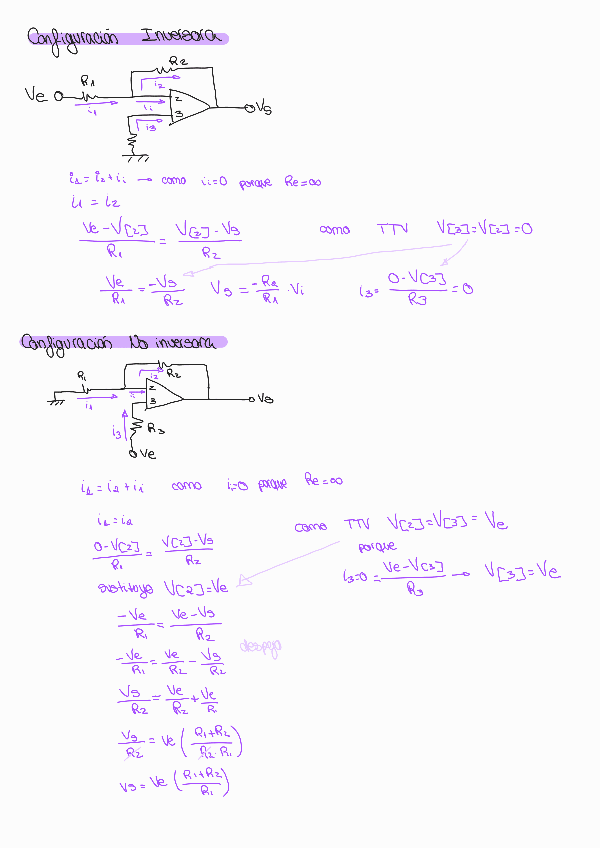 Configuración Inversora
R2
R1
i2
Ve
2
Vs
i1
ii
3
i3
i1 = i2 + ii → como ii=0 porque Re=∞
i1 = i2
Ve - V[2] / R1 = V[2] - Vs / R2
como TTV V[3]=V[2]=0
Ve / R1 = -Vs / R2
Vs = -R2 / R1 · Vi
i3 = 0-V[3] / R3 = 0
Configuración No inversora
R1
R2
i2
i1
2
3
Vs
i3
R3
Ve
i1 = i2 + ii como i=0 porque Re=∞
i1 = i2
como TTV V[2]=V[3]= Ve
0-V[2] / R1 = V[2]-Vs / R2
porque
i3=0 = Ve-V[3] / R3 → V[3]=Ve
sustituyo V[2]=Ve
-Ve / R1 = Ve-Vs / R2
despejo
-Ve / R1 = Ve / R2 - Vs / R2
Vs / R2 = Ve / R2 + Ve / R1
Vs / R2 = Ve ( R1+R2 / R2·R1 )
Vs = Ve ( R1+R2 / R1 )